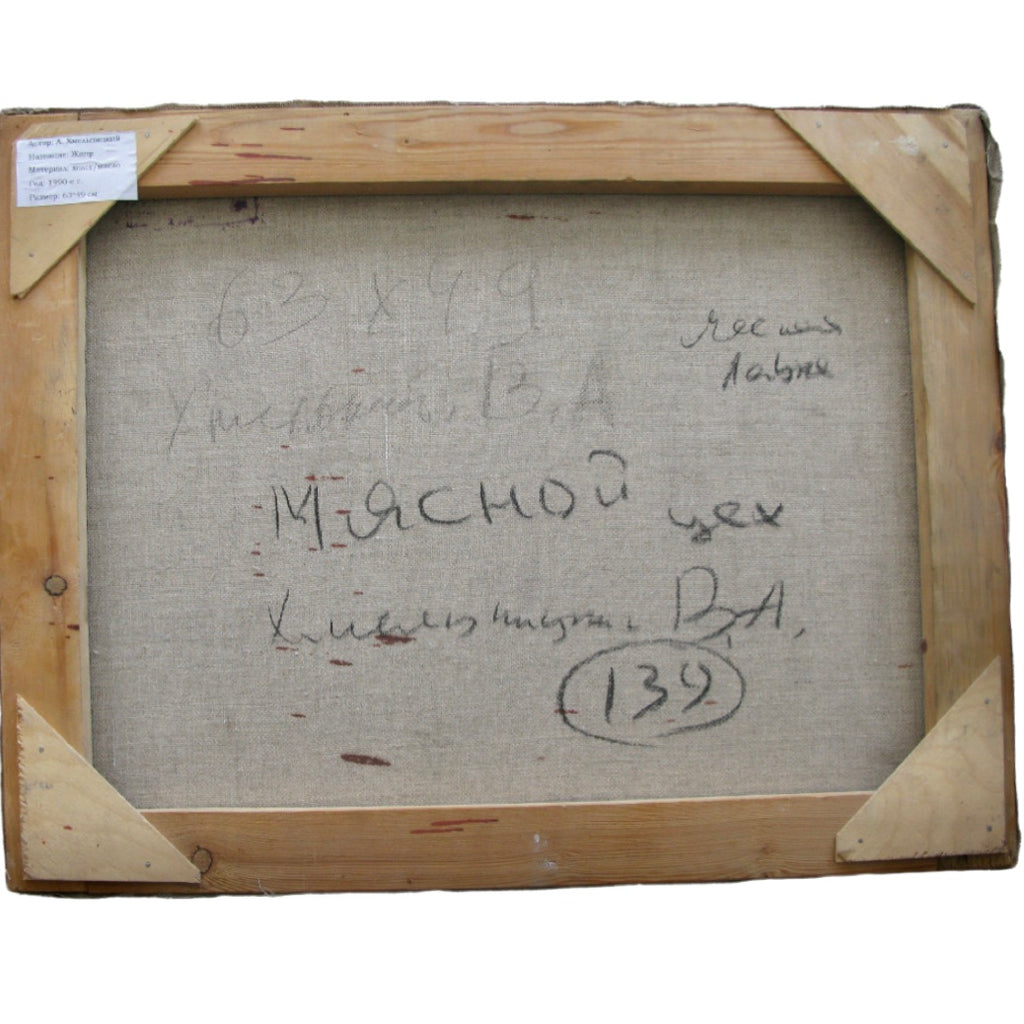 Автор: А. Хмельницкий
Название: Жанр
Материал: холст/масло
Год: 1990-е г.
Размер: 63*49 см
63 х 49
В. А
Мясной цех
Хмельницкий В.А.
139